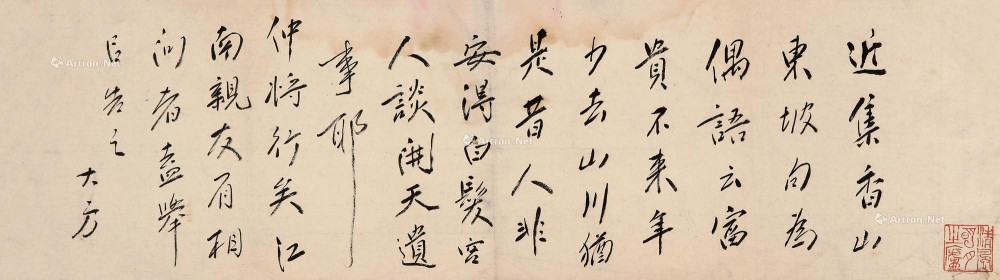 近集香山
東坡句為
偶語云富
貴不来年
少去山川猶
是昔人非
安得白髮宮
人談開天遺
事耶
仲將行矣江
南親友有相
问者盍舉
以告之
大方
Artron.Net
Artron.Net
Artron.Net
Artron.Net